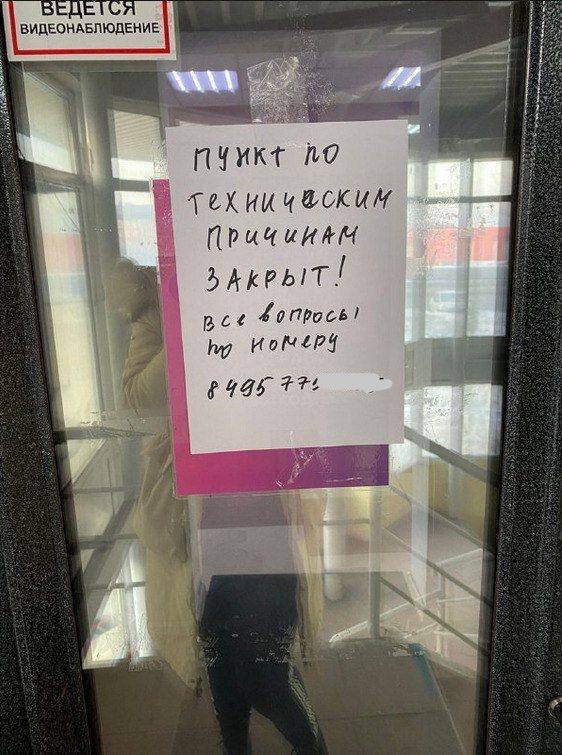 ВЕДЕТСЯ
ВИДЕОНАБЛЮДЕНИЕ
ПУНКТ ПО
ТЕХНИЧЕСКИМ
ПРИЧИНАМ
ЗАКРЫТ!
ВСЕ ВОПРОСЫ
ПО НОМЕРУ
8495 77